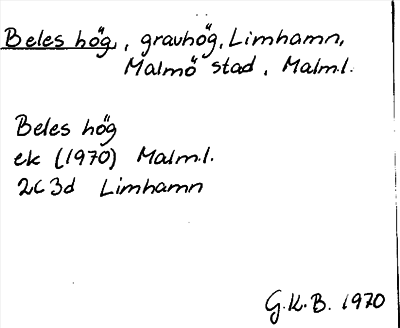 Beles hög, gravhög, Limhamn,
Malmö stad, Malm.l.
Beles hög
ek (1970) Malm.l.
2C3d Limhamn
G.K.B. 1970